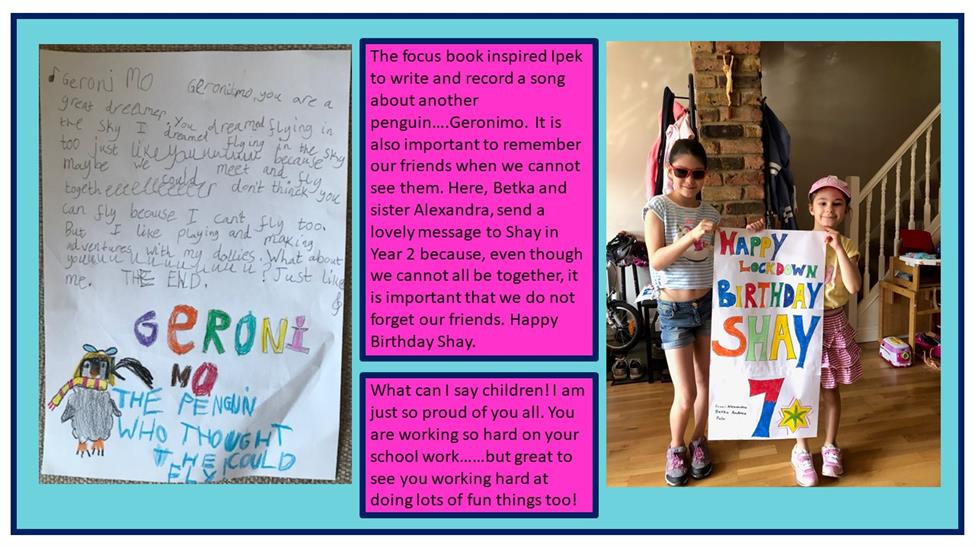 ♪ Geroni MO Geronimo, you are a
great dreamer. You dreamed flying in
the sky I dreamed flying in the sky
too just like youuuuuuu because
maybe we could meet and fly
togetheeeeeeeeeeer don't thinck you
can fly because I can't fly too.
But I like playing and making
adventures with my dollies. What about
youuuuuuuuuuuu? Just like
me. THE END.
GERONI
MO
THE PENGUIN
WHO THOUGHT
HE COULD
FLY
The focus book inspired Ipek
to write and record a song
about another
penguin....Geronimo. It is
also important to remember
our friends when we cannot
see them. Here, Betka and
sister Alexandra, send a
lovely message to Shay in
Year 2 because, even though
we cannot all be together, it
is important that we do not
forget our friends. Happy
Birthday Shay.
What can I say children! I am
just so proud of you all. You
are working so hard on your
school work......but great to
see you working hard at
doing lots of fun things too!
HAPPY
LOCKDOWN
BIRTHDAY
SHAY
7
From: Alexandra
Betka Andrea